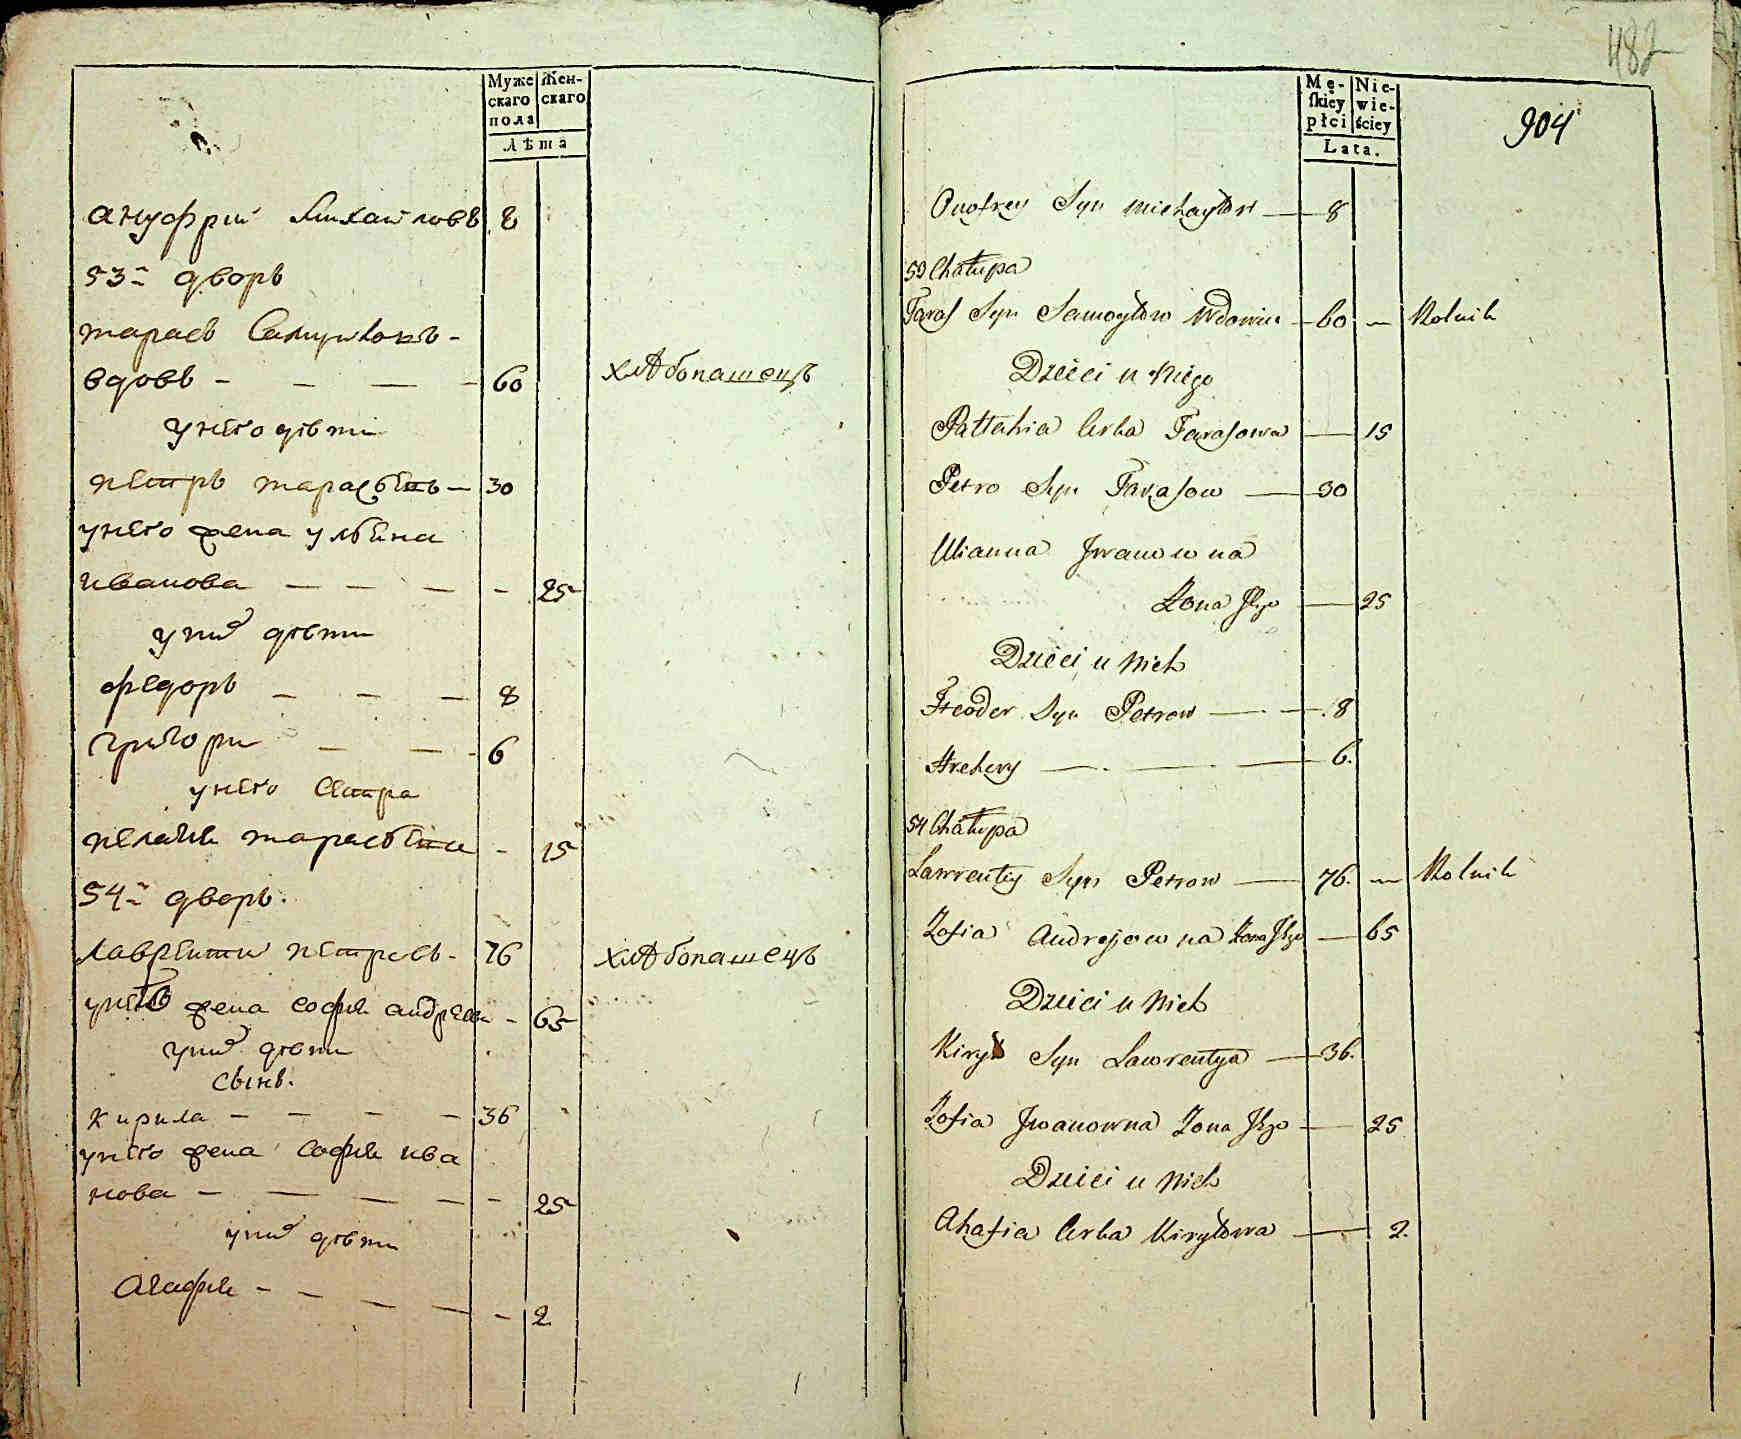 Муже
скаго
пола
Жен-
скаго
Лѣта
ануфрий Михайловъ 8
53й дворъ
тарасъ Самуиловъ -
вдовъ - - - - 60 хлѣбопашецъ
унего дѣти
петръ тарасовъ - 30
унего жена ульяна
иванова - - - - 25
уних дѣти
федоръ - - - 8
григори - - - 6
унего сестра
пелагия - 15
54й дворъ.
лаврентии петровъ - 76 хлѣбопашецъ
жена софия андреева - 65
уних дѣти
сынъ.
кирила - - - - 36
унего жена софия ива
нова - - - - - 25
уних дѣти
Агафия - - - - - 2
482
Mę-
skiey
płci
Nie-
wie-
ściey
Lata.
904
Onofrey Syn Michayłow — 8
53 Chałupa
Taras Syn Samoyłow Wdowiec — 60 — Rolnik
Dzieci u Niego
Pallahia Curka Tarasowa — 15
Petro Syn Tarasow — 30
Ulianna Jwanowna
Żona Jego — 25
Dzieci u Nich
Fteodor Syn Petrow — 8
Hrehory — 6.
54 Chałupa
Lawrentiy Syn Petrow — 76. — Rolnik
Zofia Andrejowna Żona Jego — 65
Dzieci u Nich
Kirył Syn Lawrentya — 36.
Zofia Jwanowna Żona Jego — 25
Dzieci u Nich
Ahafia Curka Kiryłowa — 2.